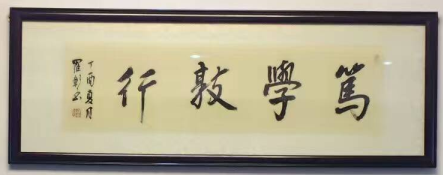 篤學敦行
丁酉夏月